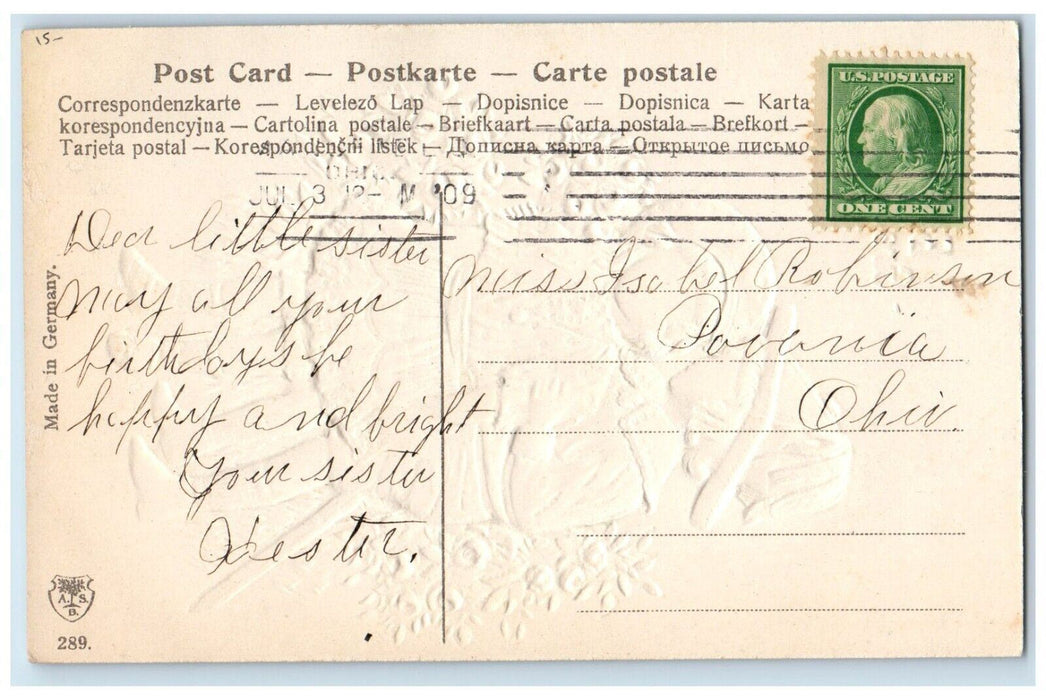 15-
Post Card — Postkarte — Carte postale
Correspondenzkarte — Levelező Lap — Dopisnice — Dopisnica — Karta
korespondencyjna — Cartolina postale — Briefkaart — Carta postala — Brefkort —
Tarjeta postal — Korespondenčni listek — Дописна карта — Открытое письмо
U.S. POSTAGE
ONE CENT
OHIO
JUL 3 12- M '09
Dear little sister
may all your
birthdays be
happy and bright
Your sister
Hester.
Miss Isabel Robinson
Ohio.
Made in Germany.
A. S.
B.
289.